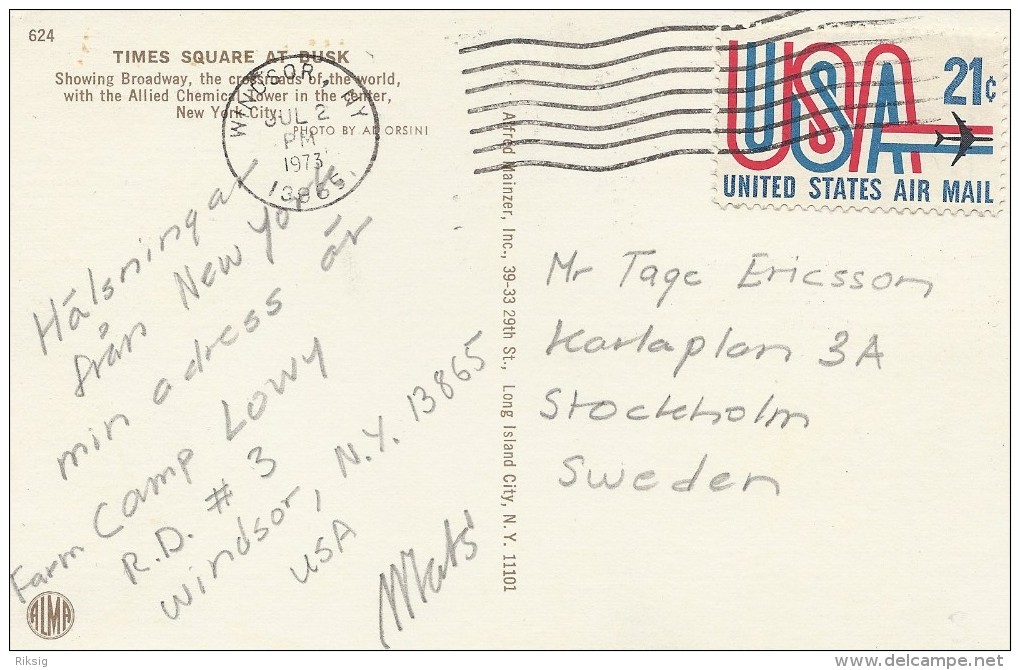 624
TIMES SQUARE AT DUSK
Showing Broadway, the crossroads of the world,
with the Allied Chemical Tower in the center,
New York City.
PHOTO BY AL ORSINI
WINDSOR, NY
JUL 2
PM
1973
13865
USA 21¢
UNITED STATES AIR MAIL
Hälsningar
från New York
min adress är
Farm Camp Lowy
R.D. # 3
Windsor, N.Y. 13865
USA
Mats
Alfred Mainzer, Inc., 39-33 29th St., Long Island City, N. Y. 11101
Mr Tage Ericsson
Karlaplan 3A
Stockholm
Sweden
ALMA
Riksig
www.delcampe.net